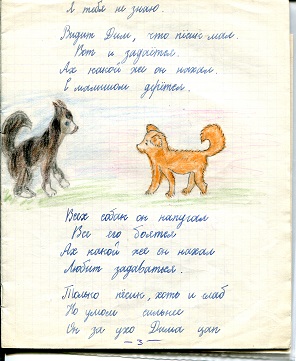 Я тебя не знаю.
Видит Дим, что пёсик мал.
Вот и задаётся.
Ах какой же он нахал.
С малышом дерётся.
Всех собак он напугал
Все его боятся
Ах какой же он нахал
Любит задаваться.
Только пёсик, хоть и слаб
Но умом сильнее
Он за ухо Дима цап
— 3 —